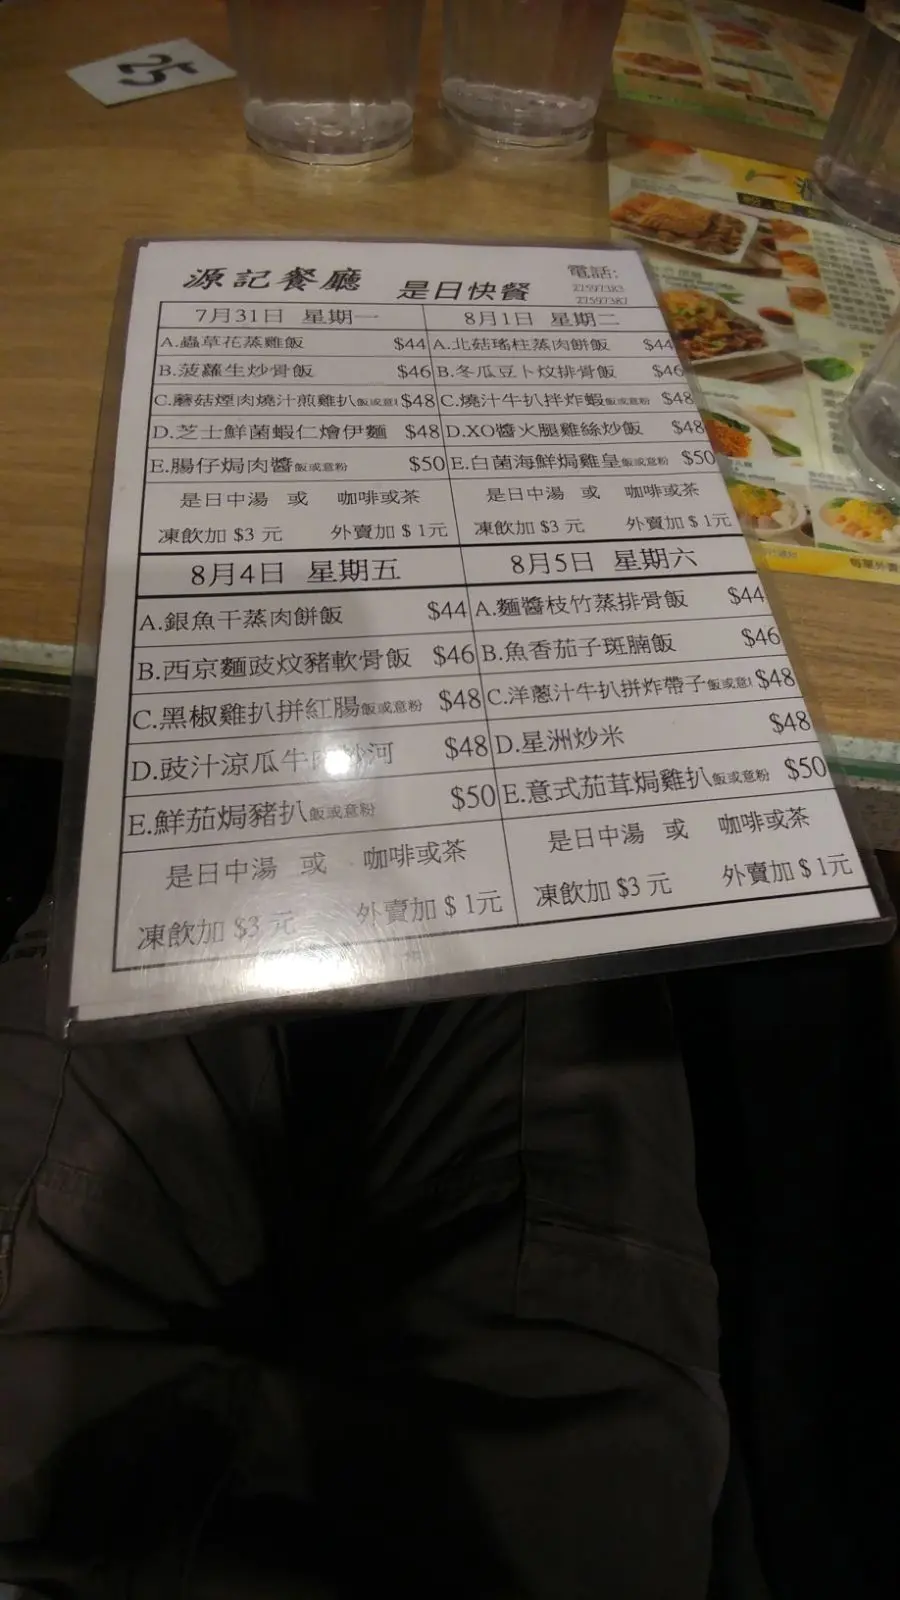 25
源記餐廳 是日快餐 電話:
27597383
27597387
7月31日 星期一
A.蟲草花蒸雞飯 $44
B.菠蘿生炒骨飯 $46
C.蘑菇煙肉燒汁煎雞扒飯或意 $48
D.芝士鮮菌蝦仁燴伊麵 $48
E.腸仔焗肉醬飯或意粉 $50
是日中湯 或 咖啡或茶
凍飲加 $3 元 外賣加 $ 1元
8月1日 星期二
A.北菇瑤柱蒸肉餅飯 $44
B.冬瓜豆卜炆排骨飯 $46
C.燒汁牛扒拌炸蝦飯或意粉 $48
D.XO醬火腿雞絲炒飯 $48
E.白菌海鮮焗雞皇飯或意粉 $50
是日中湯 或 咖啡或茶
凍飲加 $3 元 外賣加 $ 1元
8月4日 星期五
A.銀魚干蒸肉餅飯 $44
B.西京麵豉炆豬軟骨飯 $46
C.黑椒雞扒拼紅腸飯或意粉 $48
D.豉汁涼瓜牛肉炒河 $48
E.鮮茄焗豬扒飯或意粉 $50
是日中湯 或 咖啡或茶
凍飲加 $3 元 外賣加 $ 1元
8月5日 星期六
A.麵醬枝竹蒸排骨飯 $44
B.魚香茄子斑腩飯 $46
C.洋蔥汁牛扒拼炸帶子飯或意 $48
D.星洲炒米 $48
E.意式茄茸焗雞扒飯或意粉 $50
是日中湯 或 咖啡或茶
凍飲加 $3 元 外賣加 $ 1元